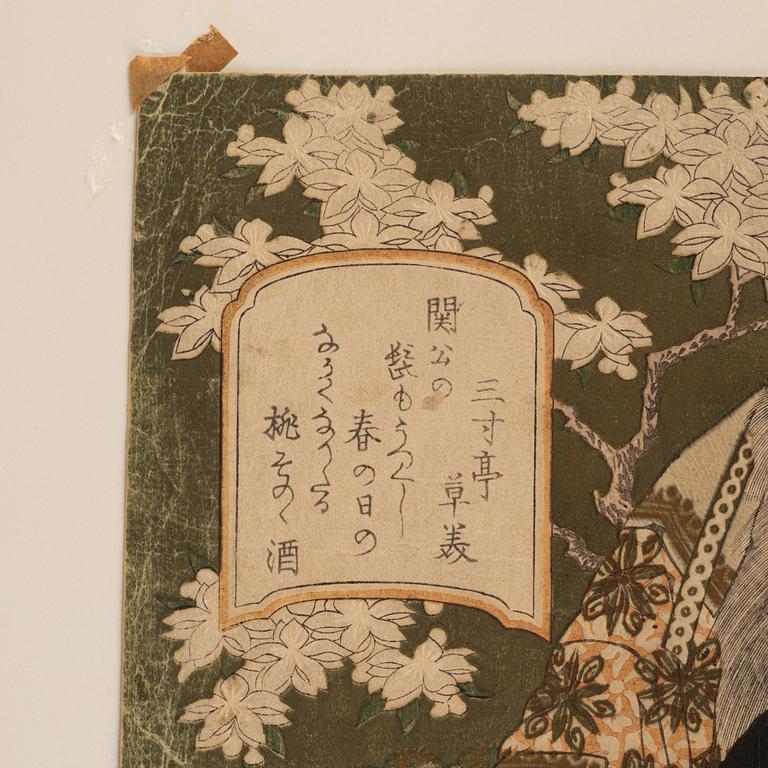 三寸亭
草美
関公の
髭もうつくし
春の日の
ながくなりたる
桃その丶酒